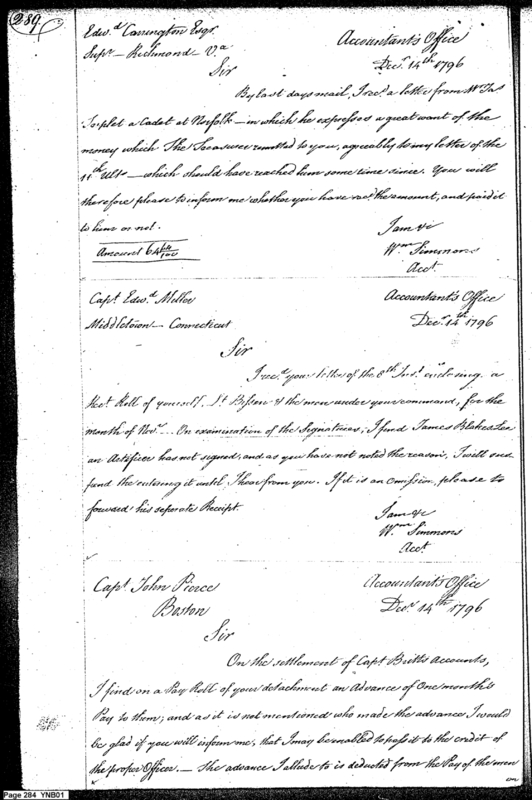 289
Edwd Carrington Esqr
Supr - Richmond - Va
Accountant's Office
Decr 14th 1796
Sir
By last days mail, I recd a letter from Mr Jas
Triplet a Cadet at Norfolk - in which he expresses a great want of the
money which The Treasurer remitted to you, agreeably to my letter of the
11th Ulto - which should have reached him some time since. You will
therefore please to inform me whether you have recd the amount, and paid it
to him or not.
Amount 64 64/100
I am &c
Wm Simmons
Acct
Capt Edwd Miller
Middletown - Connecticut
Accountant's Office
Decr 14th 1796
Sir
I recd your letter of the 8th Inst enclosing a
Rect Roll of yourself, Lt Bissen & the men under your command, for the
month of Novr... On examination of the Signatures, I find James Blakeslee
an Artificer has not signed, and as you have not noted the reason, I will sus
pend the entering it until I hear from you. If it is an omission, please to
forward his separate Receipt
I am &c
Wm Simmons
Acct
Capt John Pierce
Boston
Accountant's Office
Decr 14th 1796
Sir
On the settlement of Capt Britts Accounts,
I find on a Pay Roll of your detachment an Advance of One month's
Pay to them; and as it is not mentioned who made the advance I would
be glad if you will inform me, that I may be enabled to pass it to the credit of
the proper Officer. - The advance I allude to is deducted from the Pay of the men
on
Page 284 YNB01